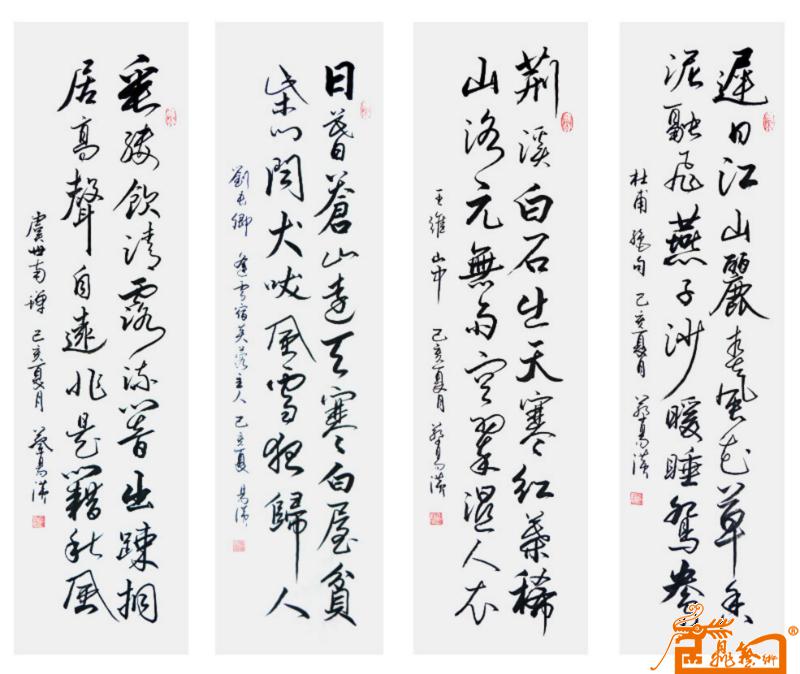 遲日江山麗春風花草香
泥融飛燕子沙暖睡鴛鴦
杜甫 絕句 己亥夏月 蔡易漢
荆溪白石出天寒紅葉稀
山洛元無雨空翠濕人衣
王維 山中 己亥夏月 蔡易漢
日暮蒼山遠天寒白屋貧
柴門聞犬吠風雪夜歸人
劉長卿 逢雪宿芙蓉主人 己亥夏 易漢
垂緌飲清露流響出疎桐
居高聲自遠非是藉秋風
虞世南 蟬 己亥夏月 蔡易漢